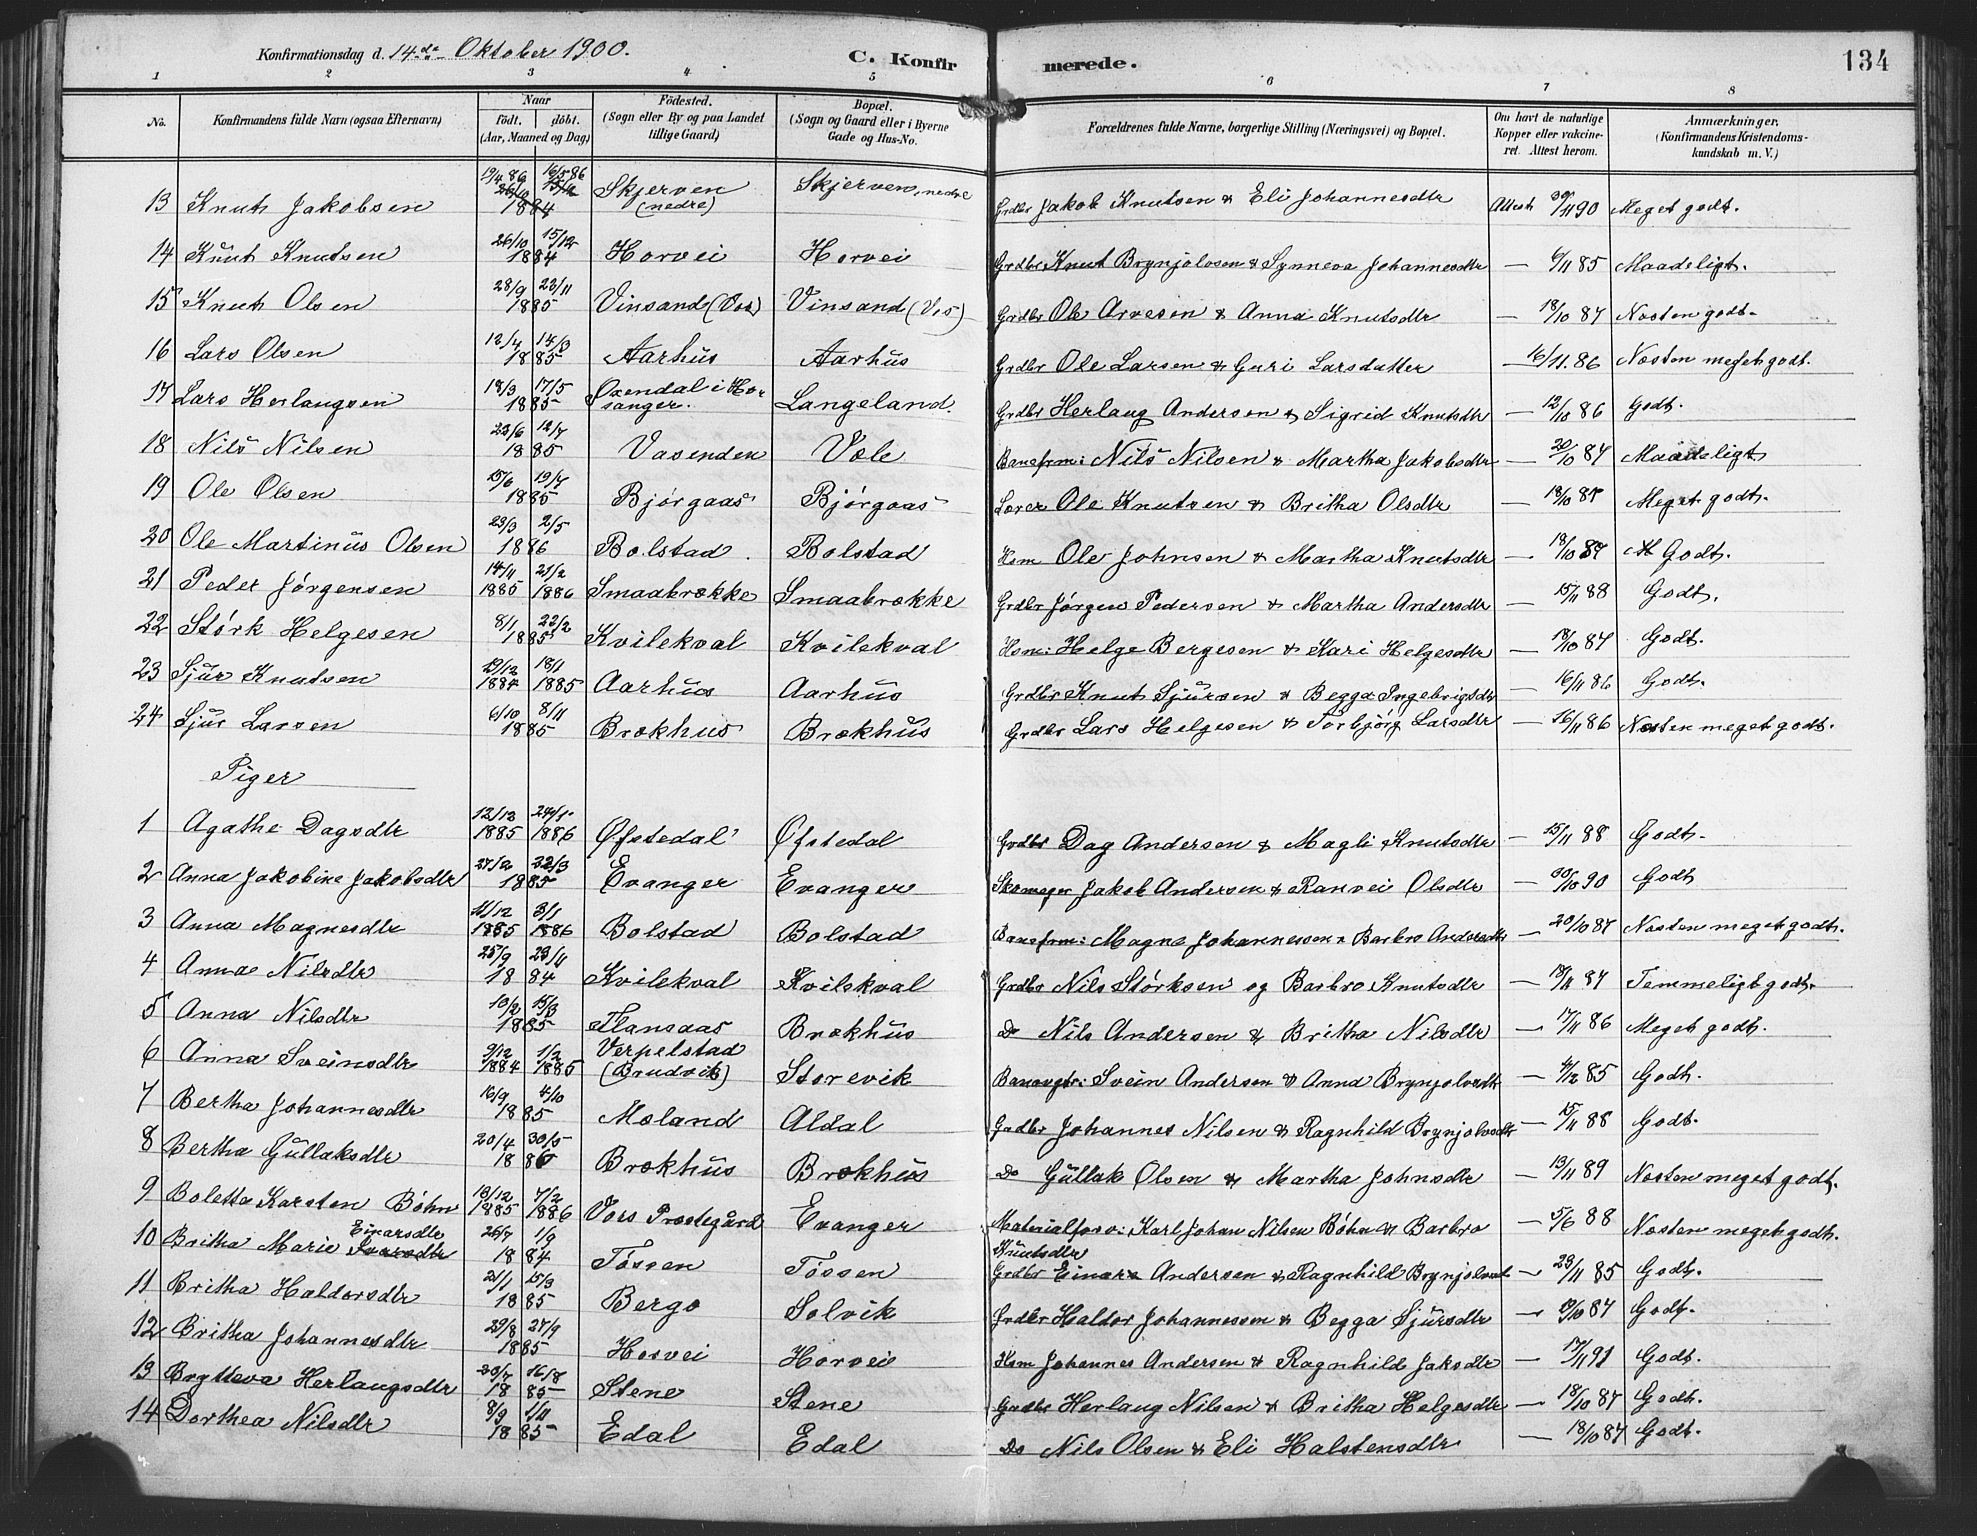 Konfirmationsdag d. 14.de Oktober 1900.
C. Konfirmerede.
134
1 2 3 4 5 6 7 8
No.
Konfirmandens fulde Navn (ogsaa Efternavn)
Naar
födt. döbt.
(Aar, Maaned og Dag)
Födested.
(Sogn eller By og paa Landet tillige Gaard)
Bopæl.
(Sogn og Gaard eller i Byerne Gade og Hus-No.
Forældrenes fulde Navne, borgerlige Stilling (Næringsvei) og Bopæl.
Om havt de naturlige Kopper eller vakcineret. Attest herom.
Anmærkninger.
(Konfirmandens Kristendomskundskab m. V.)
13 Knut Jakobsen 19/4 86 16/5 86 26/10 15/12 1884 Skjerven (nedre) Skjerven, nedre Grdbr Jakob Knutsen & Eli Johannesdtr Attest 90 Meget godt.
14 Knut Knutsen 26/10 15/12 1884 Horvei Horvei Grdbr Knut Brynjolvsen & Synneva Johannesdtr — 6/11 85 Maadeligt.
15 Knut Olsen 28/9 22/11 1885 Vinsand (Vos) Vinsand (Vos) Grdbr Ole Arvesen & Anna Knutsdtr — 18/10 87 Næsten godt.
16 Lars Olsen 12/4 14/3 1885 Aarhus Aarhus Grdbr Ole Larsen & Guri Larsdatter — 16/11.86 Næsten meget godt.
17 Lars Herlaugsen 18/3 17/5 1885 Oxendal i Hosanger. Langeland Grdbr Herlaug Andersen & Sigrid Knutsdtr — 12/10 86 Godt.
18 Nils Nilsen 23/6 12/7 1885 Vasenden Væle Baneform: Nils Nilsen & Martha Jakobsdtr — 20/10 87 Maadeligt
19 Ole Olsen 15/6 19/7 1885 Bjørgaas Bjørgaas Lærer Ole Knutsen & Britha Olsdtr — 18/10 87 Meget godt.
20 Ole Martinus Olsen 23/3 2/5 1886 Bolstad Bolstad Hsm Ole Johnsen & Martha Knutsdtr — 18/10 87 M Godt.
21 Peder Jørgensen 14/11 1885 21/2 1886 Smaabrække Smaabrække Grdbr Jørgen Pedersen & Martha Andersdtr — 15/11 88 Godt.
22 Størk Helgesen 8/1 22/2 1885 Kvilekval Kvilekval Hsm: Helge Bergesen & Kari Helgesdtr — 18/10 87 Godt.
23 Sjur Knutsen 19/12 1884 18/1 1885 Aarhus Aarhus Grdbr Knut Sjursen & Begga Ingebrigsdtr — 16/11 86 Godt.
24 Sjur Larsen 6/10 8/11 1885 Brækhus Brækhus Grdbr Lars Helgesen & Torbjørg Larsdtr — 16/11 86 Næsten meget godt.
Piger
1 Agathe Dagsdtr 12/12 1885 24/1 1886 Øfstedal Øfstedal Grdbr Dag Andersen & Magli Knutsdtr — 15/11 88 Godt.
2 Anna Jakobine Jakobsdtr 27/2 22/3 1885 Evanger Evanger Skomager Jakob Andersen & Ranvei Olsdtr — 30/10 90 Godt
3 Anna Magnesdtr 11/12 1885 3/1 1886 Bolstad Bolstad Baneform: Magne Johannessen & Barbro Andersdtr — 20/10 87 Næsten meget godt.
4 Anna Nilsdtr 25/9 23/11 1884 Kvilekval Kvilekval Grdbr Nils Størksen og Barbro Knutsdtr — 87 Temmeligt godt.
5 Anna Nilsdtr 10/2 15/3 1885 Flansaas Brækhus Do Nils Andersen & Britha Nilsdtr — 17/11 86 Meget godt.
6 Anna Sveinsdtr 9/12 1884 1/2 1885 Verpelstad (Brudvik) Storevik Banevgtr: Svein Andersen & Anna Brynjolvsdtr — 4/12 85 Godt.
7 Bertha Johannesdtr 16/9 4/10 1885 Mæland Aldal Grdbr Johannes Nilsen & Ragnhild Brynjolvsdtr — 15/11 88 Godt.
8 Bertha Gullaksdtr 20/4 30/5 1886 Brækhus Brækhus Do Gullak Olsen & Martha Johnsdtr — 13/11 89 Næsten meget godt.
9 Boletta Karsten Bøhn 18/12 1885 7/2 1886 Vors Prestegård Evanger Materialforv: Karl Johan Nilsen Bøhn & Barbro Knutsdtr — 5/6 88 Næsten meget godt.
10 Britha Marie Einarsdtr 26/7 1/9 1884 Tøssen Tøssen Grdbr Einar Andersen & Ragnhild Brynjolvsdt — 23/11 85 Godt.
11 Britha Haldorsdtr 21/1 15/3 1885 Bergo Solvik Grdbr Haldor Johannessen & Begga Sjursdtr — 19/10 87 Godt.
12 Britha Johannesdtr 29/8 27/9 1885 Horvei Horvei Hsm Johannes Andersen & Ragnhild Jaksdtr — 17/11 91 Godt.
13 Brytteva Herlaugsdtr 20/7 16/8 1885 Stene Stene Grdbr Herlaug Nilsen & Britha Helgesdtr — 18/10 87 Godt.
14 Dorthea Nilsdtr 8/9 1/11 1885 Edal Edal Do Nils Olsen & Eli Halstensdtr — 18/10 87 Godt.